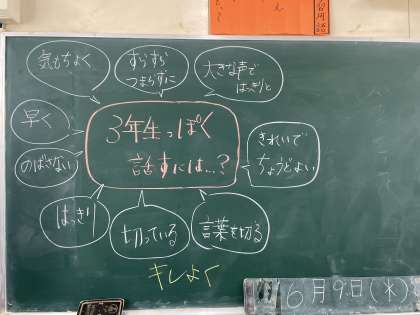 習用語
気もちよく
すらすら
つまらずに
大きな声で
はっきりと
早く
3年生っぽく
話すには…?
きれいで
ちょうどよい
のばさない
はっきり
切っている
言葉を切る
キレよく
6月9日(水)